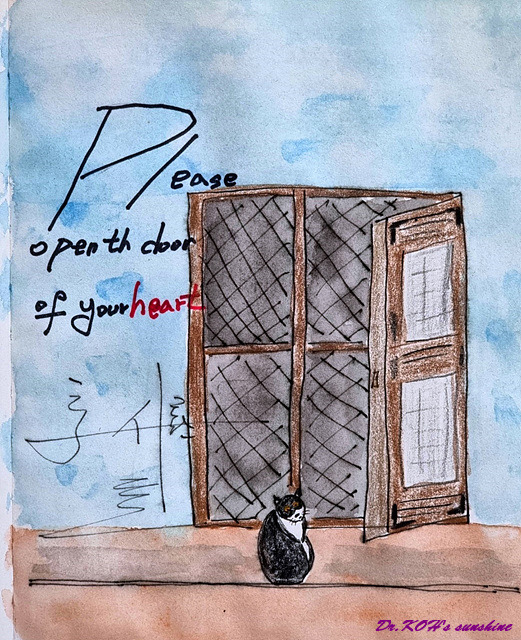 Please
open th door
of your heart
Dr.KOH's sunshine